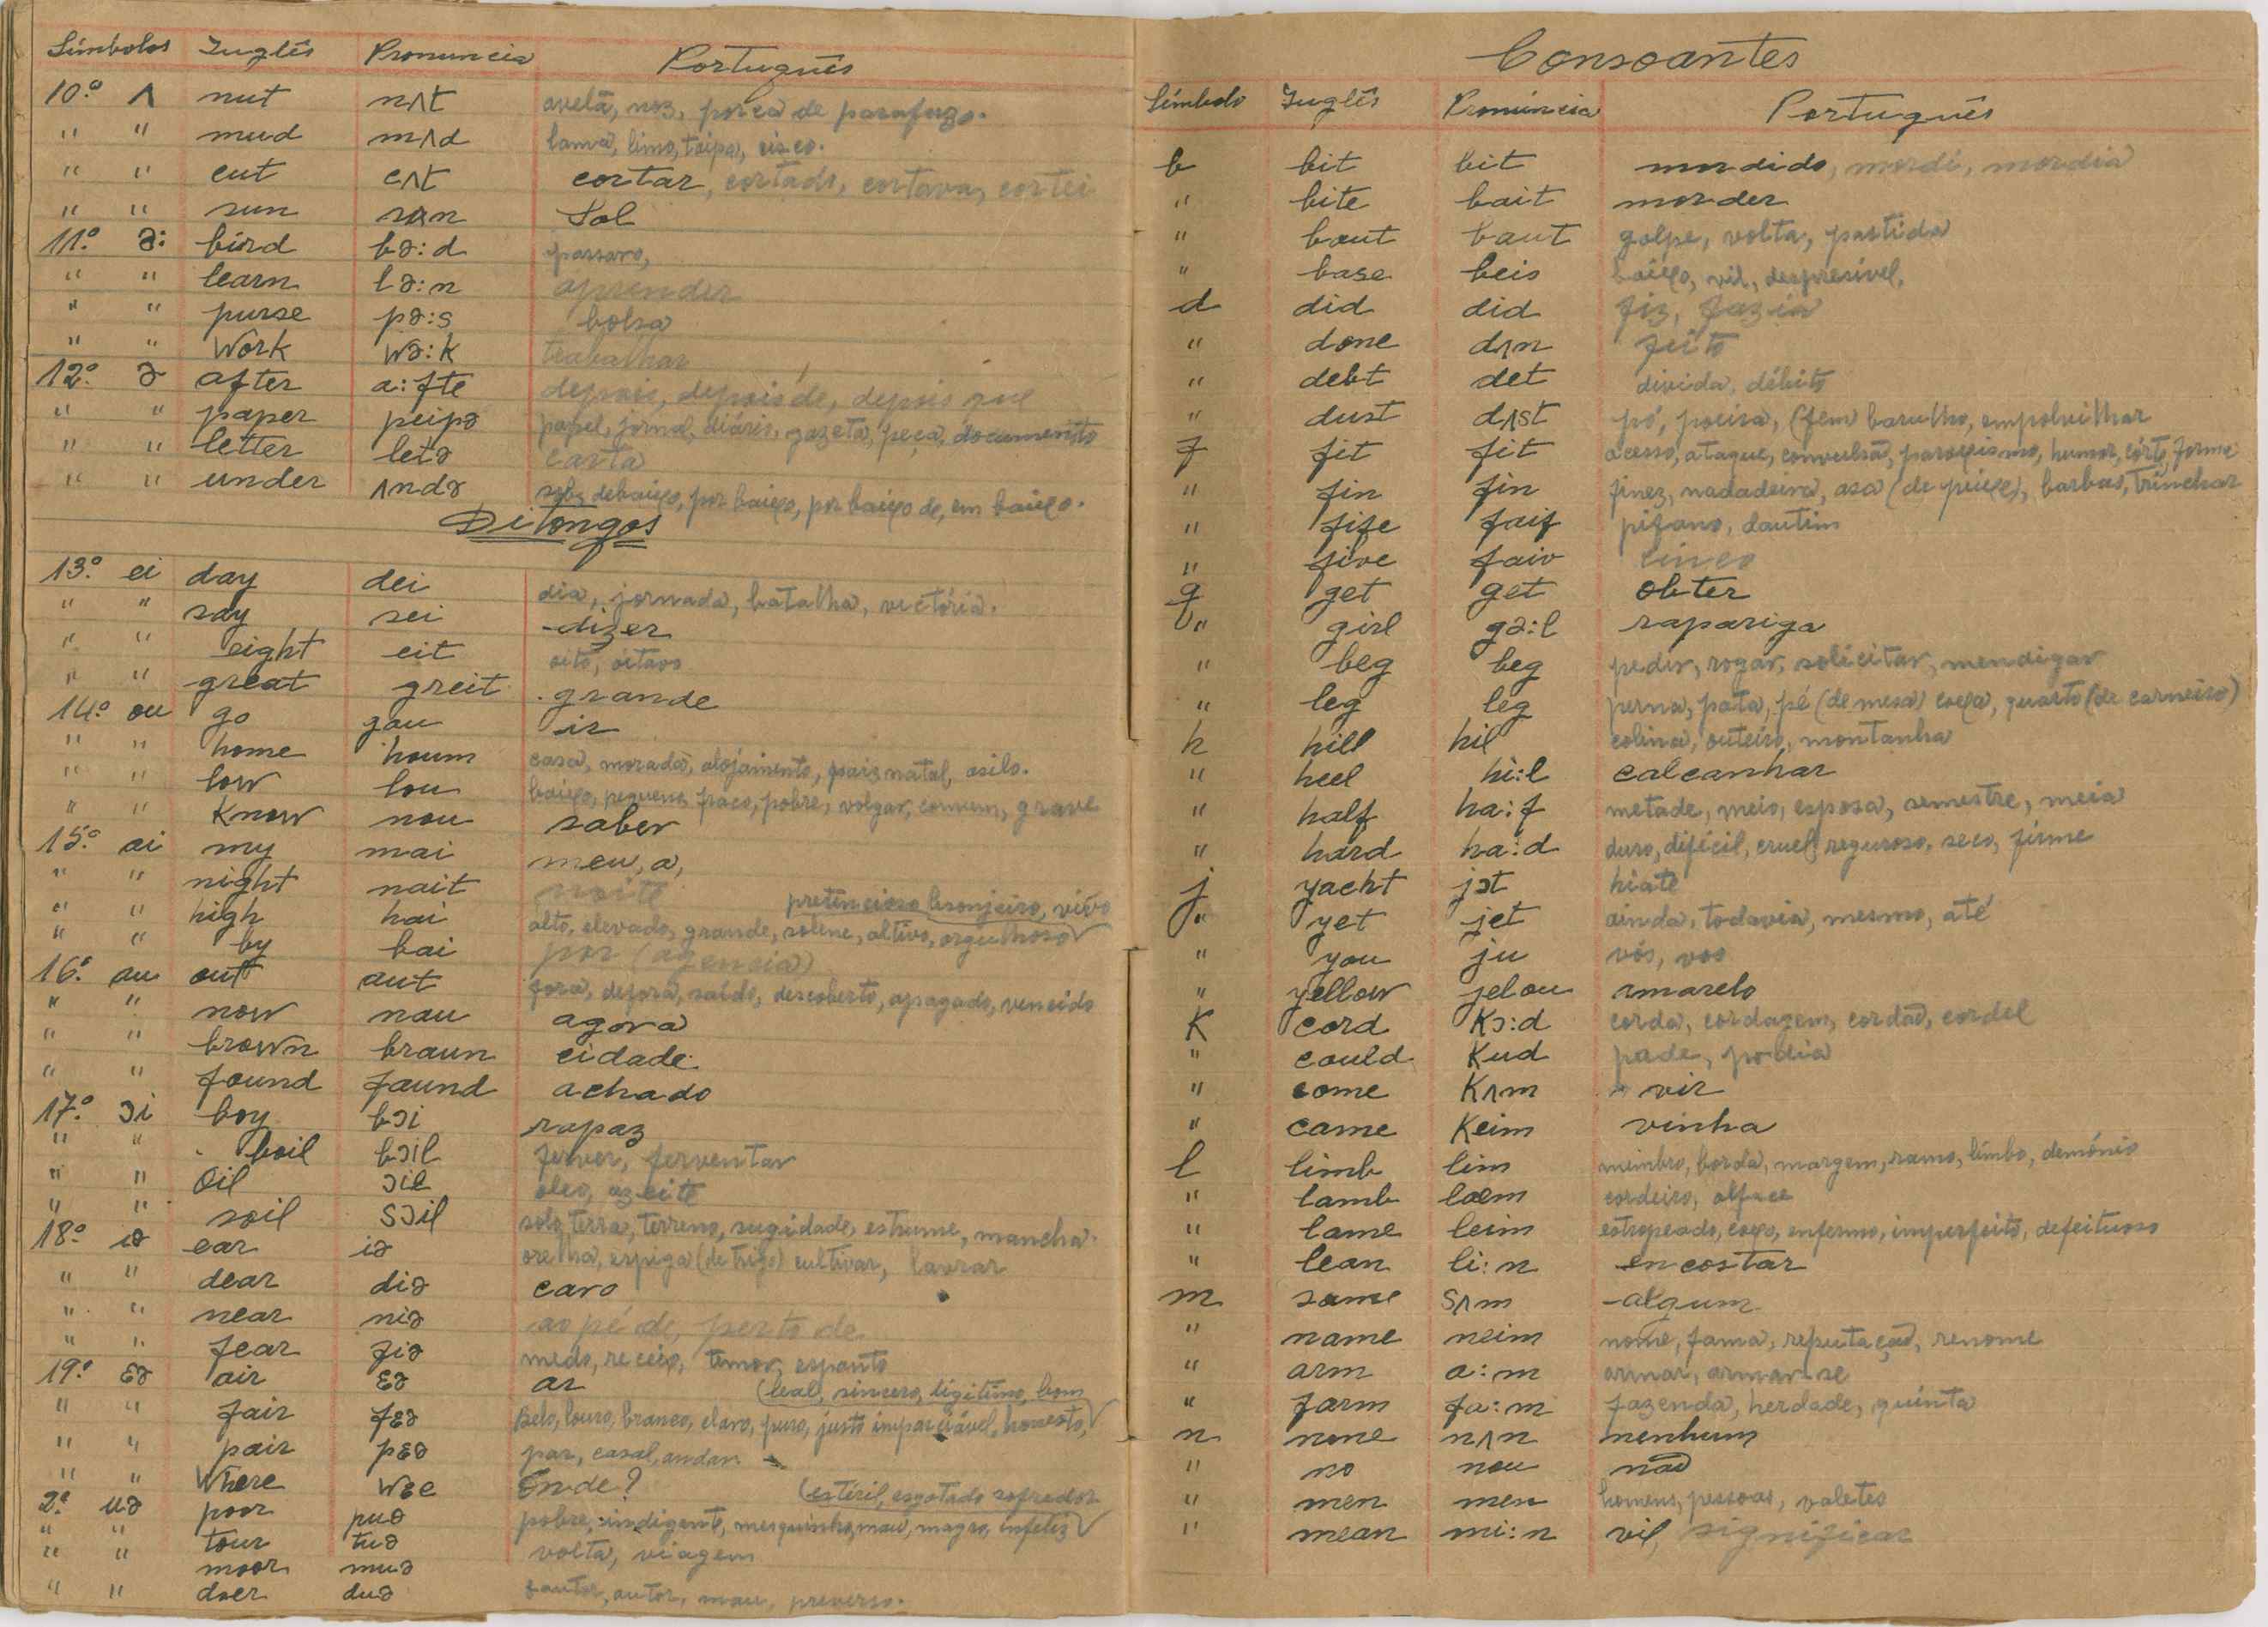 Símbolos Inglês Pronuncia Português
10.º ʌ nut nʌt avelã, noz, porca de parafuzo.
" " mud mʌd lama, limo, taipa, cisco.
" " cut cʌt cortar, cortado, cortava, cortei
" " sun sʌn Sol
11.º ə: bird bə:d passaro,
" " learn lə:n aprender
" " purse pə:s bolsa
" " Work wə:k trabalhar
12.º ə after a:fte depois, depois de, depois que
" " paper peipə papel, jornal, diário, gazeta, peça, documento
" " letter letə carta
" " under ʌndə sob, debaixo, por baixo, por baixo de, em baixo.
Ditongos
13.º ei day dei dia, jornada, batalha, victória.
" " say sei dizer
" " eight eit oito, oitavo
" " great greit grande
14.º ou go gou ir
" " home houm casa, morada, alojamento, paiz natal, asilo.
" " low lou baixo, pequeno, fraco, pobre, volgar, comum, grave
" " Know nou saber
15.º ai my mai meu, a,
" " night nait noite
pretencioso lisonjeiro, vivo
" " high hai alto, elevado, grande, solene, altivo, orgulhoso
" " by bai por (agencia)
16.º au out aut fora, defora, saído, descoberto, apagado, vencido
" " now nau agora
" " brown braun cidade
" " found faund achado
17.º ɔi boy bɔi rapaz
" " boil bɔil ferver, ferventar
" " Oil ɔil oleo, azeite
" " soil sɔil solo, terra, terreno, sugidade, estrume, mancha.
18.º iə ear iə orelha, espiga (de trigo) cultivar, lavrar
" " dear diə caro
" " near niə ao pé de, perto de
" " fear fiə medo, receio, temor, espanto
19.º ɛə air ɛə ar
(leal, sincero, ligitimo, bom
" " fair fɛə belo, louro, branco, claro, puro, justo imparciável, honesto,
" " pair pɛə par, casal, andar.
" " Where Wɛe Onde?
(estiril, esgotado sofredor
2.º uə poor puə pobre, indigente, mesquinho, mau, magro, infeliz
" " tour tuə volta, viagem
" " moor muə
" " doer duə fautor, autor, mau, preverso.
Consoantes
Símbolo Inglês Pronúncia Português
b bit bit mordido, mordi, mordia
" bite bait morder
" bout baut golpe, volta, partida
" base beis baixo, vil, despresível,
d did did fiz, fazia
" done dʌn feito
" debt det divida, débito
" dust dʌst pó, poeira, (fem) barulho, empolvilhar
f fit fit acesso, ataque, convulsão, paroxismo, humor, córte, forme
" fin fin finez, nadadeira, asa (de peixe), barbas, trinchar
" fife faif pifano, flautim
" five faiv cinco
g get get obter
" girl gə:l rapariga
" beg beg pedir, rogar, solicitar, mendigar
" leg leg perna, pata, pé (de mesa) coxa, quarto (de carneiro)
h hill hil colina, outeiro, montanha
" heel hi:l calcanhar
" half ha:f metade, meio, esposa, semestre, meia
" hard ha:d duro, difícil, cruel, reguroso, seco, firme
j yacht jɔt hiate
" yet jet ainda, todavia, mesmo, até
" you ju vós, vos
" yellow jelou amarelo
K cord Kɔ:d corda, cordagem, cordão, cordel
" could Kud pode, podia
" come Kʌm vir
" came Keim vinha
l limb lim membro, borda, margem, ramo, limbo, demónio
" lamb læm cordeiro, alface
" lame leim estropeado, coxo, enfermo, imperfeito, defeituoso
" lean li:n encostar
m some sʌm algum
" name neim nome, fama, reputação, renome
" arm a:m armar, armar-se
" farm fa:m fazenda, herdade, quinta
n none nʌn nenhum
" no nou não
" men men homens, pessoas, valetes
" mean mi:n vil, significar